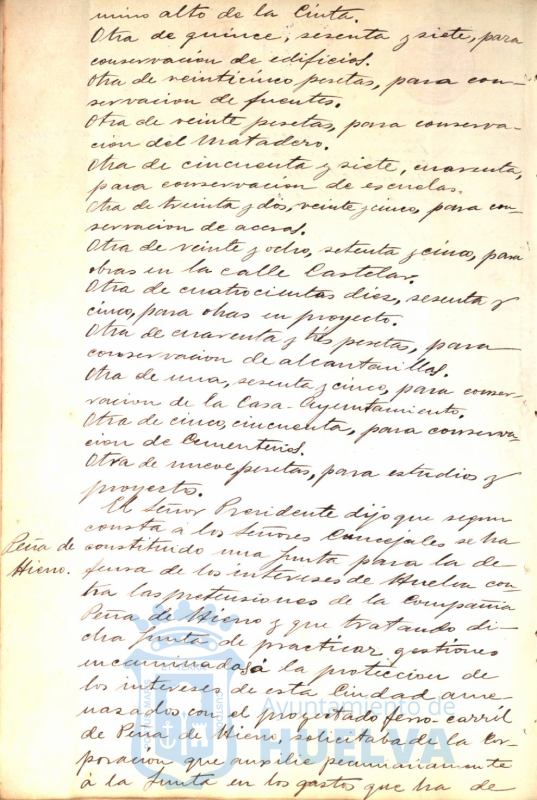 mino alto de la Cinta.
Otra de quince, sesenta y siete, para
conservacion de edificios.
Otra de veinticinco pesetas, para con-
servacion de fuentes.
Otra de veinte pesetas, para conserva-
cion del Matadero.
Otra de cincuenta y siete, cuarenta,
para conservacion de escuelas.
Otra de treinta y dos, veinte y cinco, para con-
servacion de aceras.
Otra de veinte y ocho, setenta y cinco, para
obras en la calle Castelar.
Otra de cuatrocientas diez, sesenta y
cinco, para obras en proyecto.
Otra de cuarenta y tres pesetas, para
conservacion de alcantarillas.
Otra de una, sesenta y cinco, para conser-
vacion de la Casa-Ayuntamiento.
Otra de cinco, cincuenta, para conserva-
cion de Cementerios.
Otra de nueve pesetas, para estudios y
proyecto.
El Señor Presidente dijo que segun
Peña de
Hierro.
consta á los Señores Concejales se ha
constituido una Junta para la de
fensa de los intereses de Huelva con-
tra las pretensiones de la Compañia
Peña de Hierro y que tratando di-
cha Junta de practicar gestiones
encaminadas á la proteccion de
los intereses de esta Ciudad ame-
nazados con el proyectado ferro-carril
de Peña de Hierro, solicitaba de la Cor-
poracion que auxilie pecuniariamente
á la Junta en los gastos que ha de
Ayuntamiento de
HUELVA